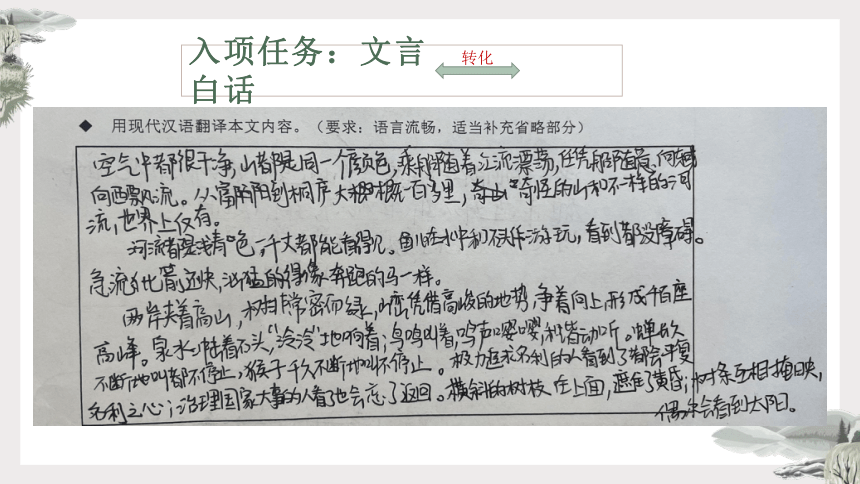 入项任务：文言
转化
白话
◆ 用现代汉语翻译本文内容。（要求：语言流畅，适当补充省略部分）
空气中都很干净，山都是同一个颜色，乘船随着江流漂荡，任凭船随意向东
向西飘流。从富阳到桐庐大概一百多里，奇山奇怪的山和不一样的河
流，世界上仅有。
河流都是浅青色，千丈都能看得见。鱼儿在水中和石头作游玩，看到都没障碍。
急流比箭还快，汹猛的得像奔跑的马一样。
两岸夹着高山，树非常密而绿，山峦凭借高峻的地势，争着向上，形成千百座
高峰。泉水冲陡着石头，“泠泠”地响着；鸟鸣叫着，鸣声嘤嘤，和谐动听。蝉长久
不断地叫都不停止，猴子千久不断地叫不停止。极力追求名利的人看到了都会平复
名利之心；治理国家大事的人看了也会忘了返回。横斜的树枝在上面，遮住了黄昏；树条互相掩映，
偶尔会看到太阳。